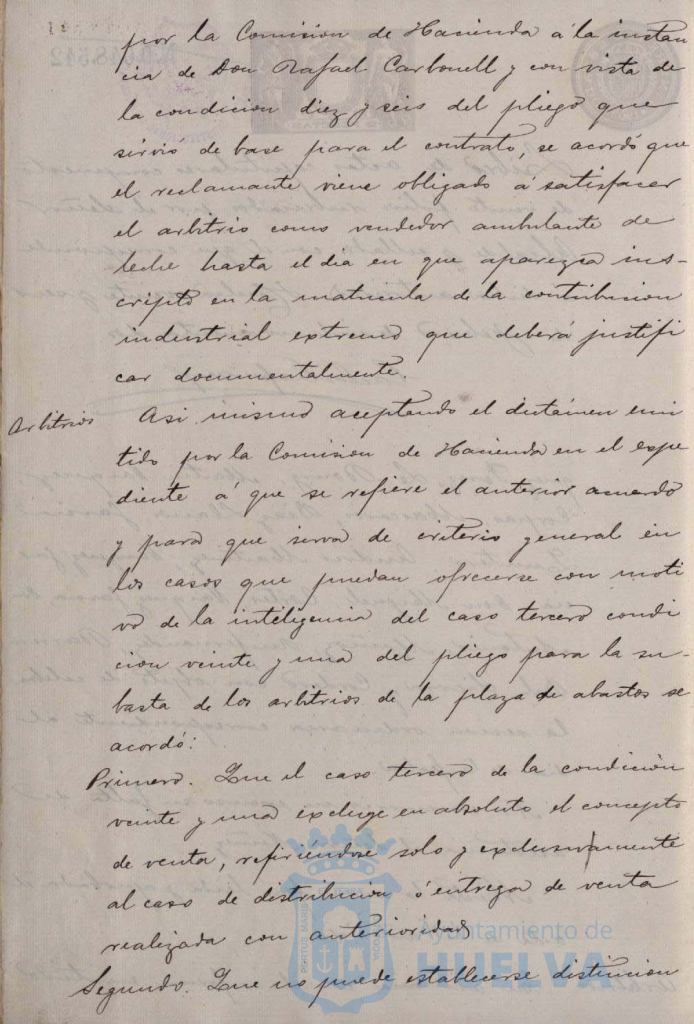 por la Comision de Hacienda á la instan
cia de Don Rafael Carbonell y con vista de
la condicion diez y seis del pliego que
sirvió de base para el contrato, se acordó que
el reclamante viene obligado á satisfacer
el arbitrio como vendedor ambulante de
leche hasta el dia en que aparezca ins-
cripto en la matricula de la contribucion
industrial extremo que deberá justifi
car documentalmente.
Arbitrios
Asi mismo aceptando el dictámen emi
tido por la Comision de Hacienda en el espe
diente á que se refiere el anterior acuerdo
y para que sirva de criterio general en
los casos que puedan ofrecerse con moti
vo de la inteligencia del caso tercero condi
cion veinte y una del pliego para la su-
basta de los arbitrios de la plaza de abastos se
acordó:
Primero. Que el caso tercero de la condición
veinte y una excluye en absoluto el concepto
de venta, refiriéndose solo y exclusivamente
al caso de distribucion ó entrega de venta
realizada con anterioridad
Segundo. Que no puede establecerse distincion
Ayuntamiento de
HUELVA